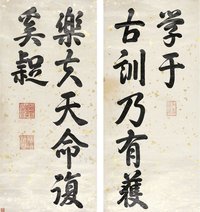 学于
古训乃有獲
樂夫天命復
奚疑